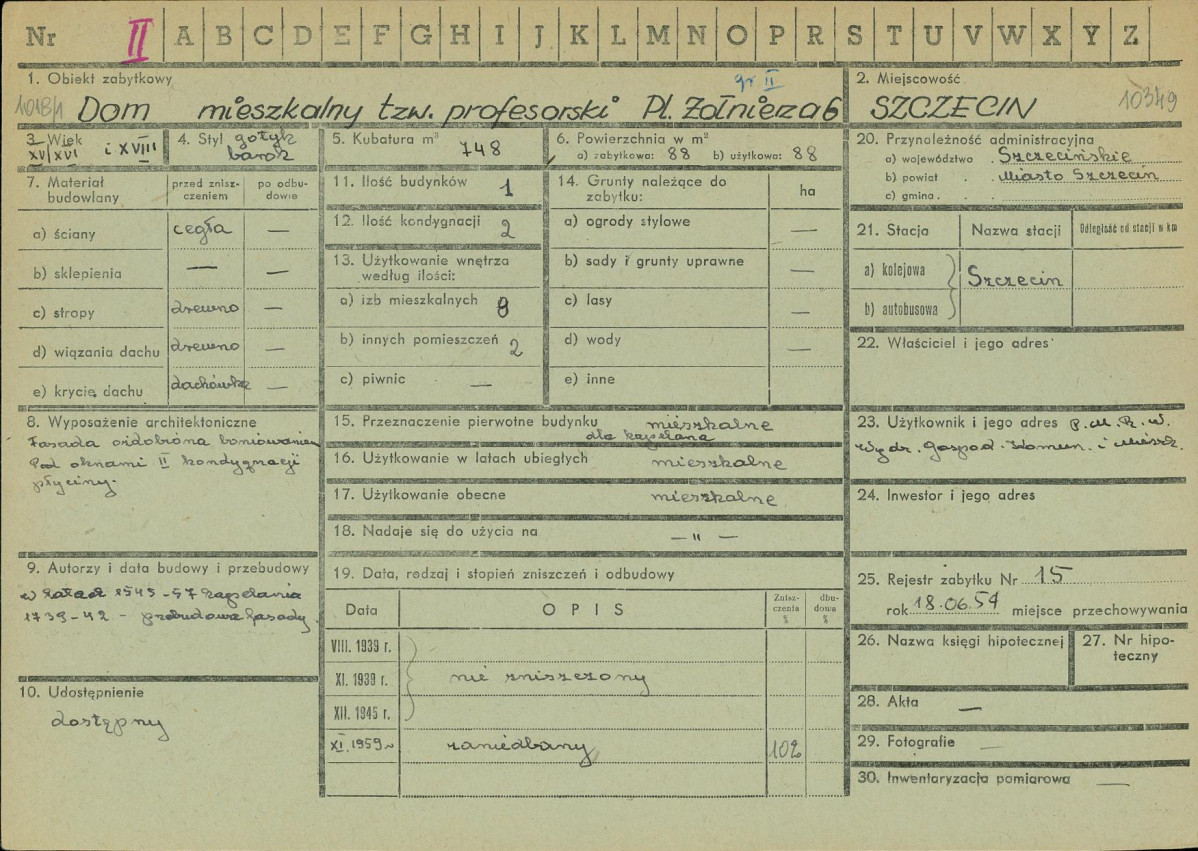 Nr II A B C D E F G H I J K L M N O P R S T U V W X Y Z
1. Obiekt zabytkowy
gr II
1018/1 Dom mieszkalny tzw. profesorski Pl. Żołnierza 6
2. Miejscowość
SZCZECIN 10349
3. Wiek
XV/XVI i XVIII
4. Styl gotyk
barok
5. Kubatura m³ 748
6. Powierzchnia w m²
a) zabytkowa: 88 b) użytkowa: 88
20. Przynależność administracyjna
a) województwo . Szczecińskie
b) powiat . . Miasto Szczecin
c) gmina . .
7. Materiał budowlany
przed znisz-
czeniem
po odbu-
dowie
a) ściany cegła —
b) sklepienia — —
c) stropy drewno —
d) wiązania dachu drewno —
e) krycie dachu dachówka —
11. Ilość budynków 1
12. Ilość kondygnacji 2
13. Użytkowanie wnętrza
według ilości:
a) izb mieszkalnych 8
b) innych pomieszczeń 2
c) piwnic —
14. Grunty należące do
zabytku:
ha
a) ogrody stylowe —
b) sady i grunty uprawne —
c) lasy —
d) wody —
e) inne —
21. Stacja
Nazwa stacji
Odległość od stacji w km
a) kolejowa
b) autobusowa
Szczecin
22. Właściciel i jego adres
8. Wyposażenie architektoniczne
Fasada ozdobiona boniowaniem
Pod oknami II kondygnacji
płyciny.
15. Przeznaczenie pierwotne budynku mieszkalne
dla kapelana
16. Użytkowanie w latach ubiegłych mieszkalne
17. Użytkowanie obecne mieszkalne
18. Nadaje się do użycia na — " —
23. Użytkownik i jego adres P.M.R.N.
Wydz. Gospod. Komun. i Mieszk.
24. Inwestor i jego adres
9. Autorzy i data budowy i przebudowy
w latach 1545-47 kapelania
1739-42 - przebudowa fasady.
19. Data, rodzaj i stopień zniszczeń i odbudowy
Data
OPIS
Znisz-
czenia
%
dbu-
dowa
%
VIII. 1939 r.
XI. 1939 r. nie zniszczony
XII. 1945 r.
XI. 1959 r. zaniedbany 10%
25. Rejestr zabytku Nr 15
rok 18.06.54 miejsce przechowywania
26. Nazwa księgi hipotecznej
27. Nr hipo-
teczny
10. Udostępnienie
dostępny
28. Akta —
29. Fotografie —
30. Inwentaryzacja pomiarowa —